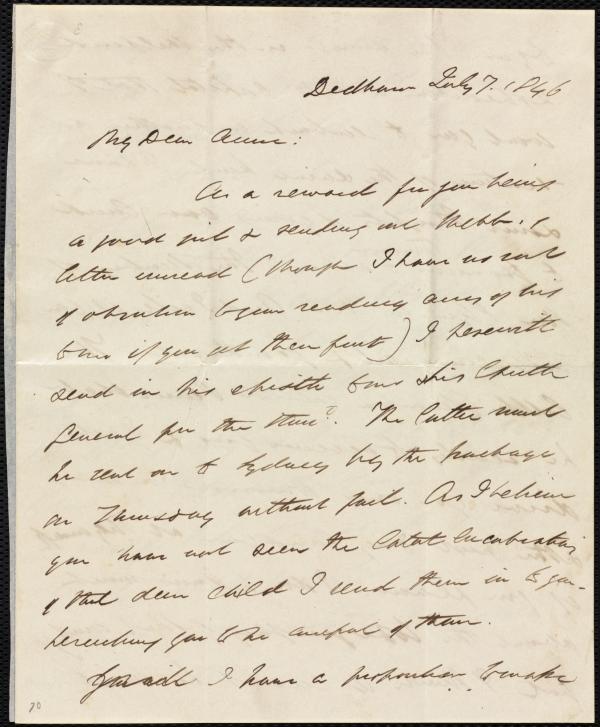 Dedham July 7. 1846
My Dear Anne:
As a reward for your being
a good girl & sending out Webb's
letter unread (though I have no sort
of objection to your reading any of his
to me if you get them first) I herewith
send in his epistle to me & his
General for the
The latter must
be sent on to Sydney by the package
on Thursday without fail. As I believe
you have not seen the latest lucubrations
of that dear child I send them in to you
beseeching you to be careful of them.
I have a proposition to make
70